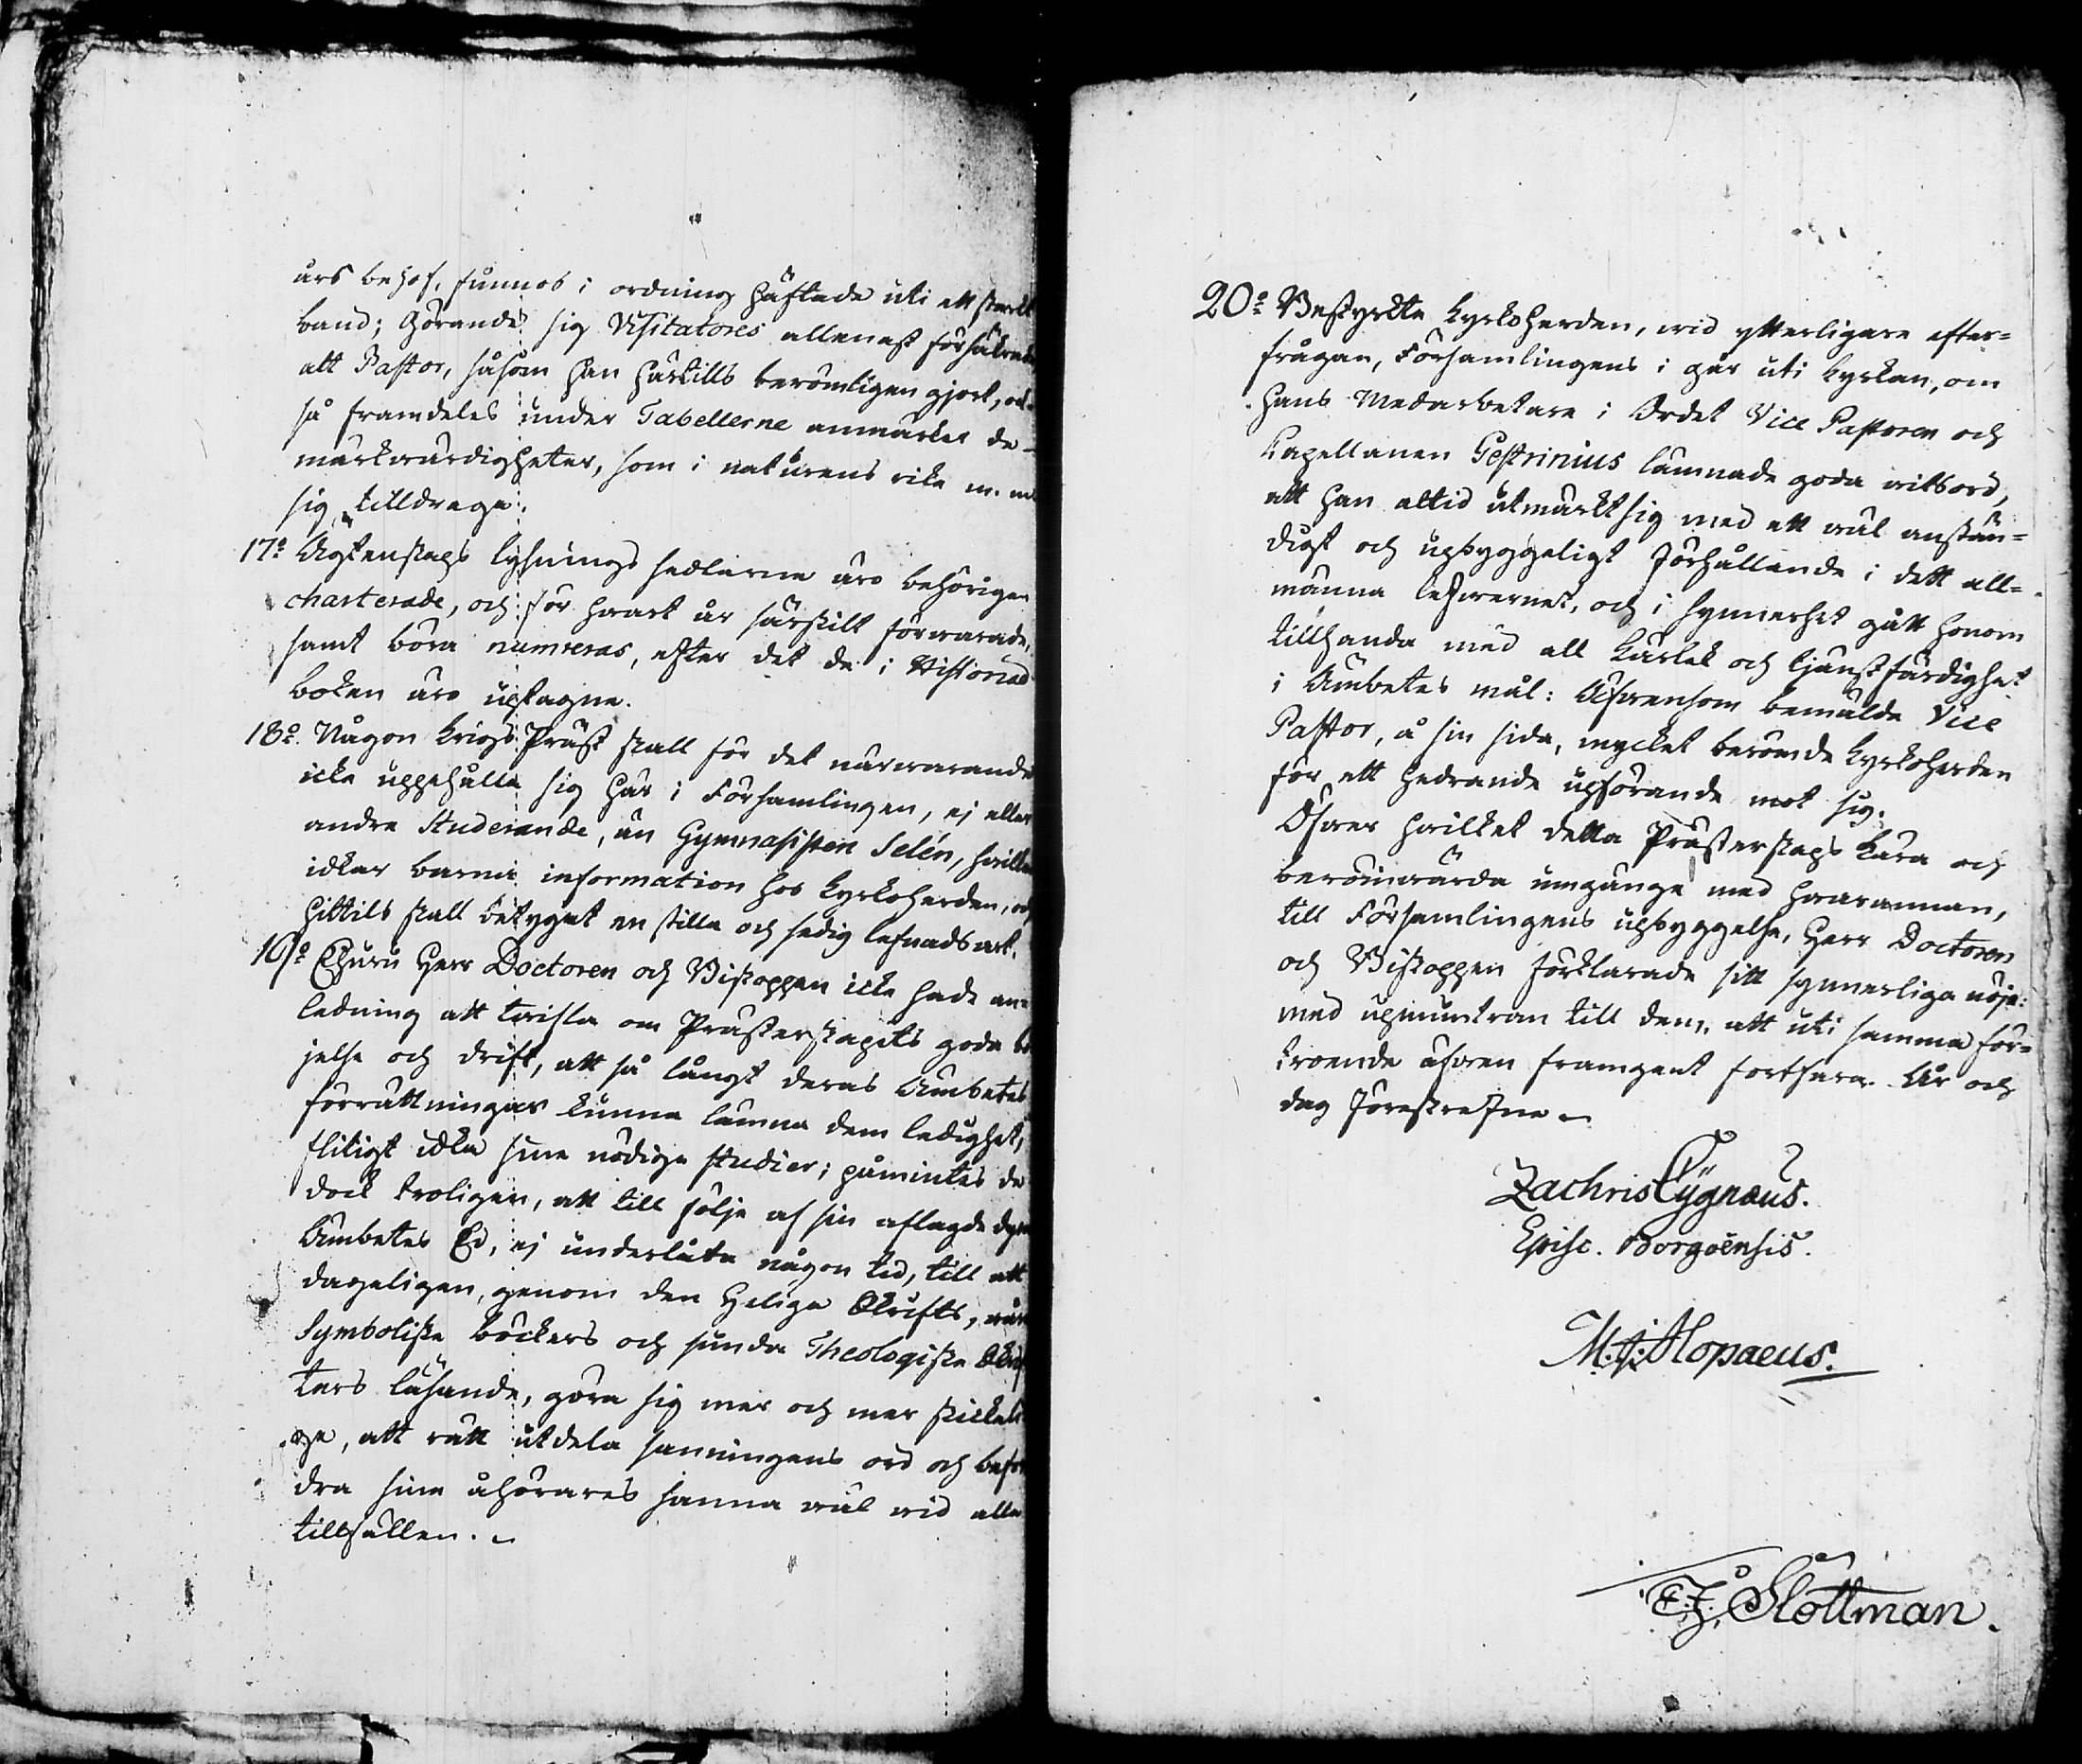 års behof, funnos i ordning häftade uti ett starkt
band; Görandes sig Visitatores allenast försäkrade
att Pastor, såsom han härtills berömligen gjort, ock
så framdeles under Tabellerne anmärker de
märkwärdigheter, som i naturens rike m. m.
sig tilldraga.
17:o Ägtenskaps lysnings sedlarne äro behörigen
charterade, och för hwart år särskilt förwarade,
samt böra numreras, efter det de i Historiæ
boken äro uptagne.
18:o Någon Krigs Präst skall för det närwarande
icke uppehålla sig här i Församlingen, ej eller
andre Studerande, än Gymnasisten Selén, hwilken
idkar barna information hos Kyrkoherden, och
hittils skall betygat en stilla och sedig lefnads art.
19:o Ehuru Herr Doctoren och Biskoppen icke hade an=
ledning att twifla om Prästerskapets goda be
jelse och drift, att så långt deras Ämbetes
förrättningar kunna lämna dem ledighet,
flitigt idka sine nödige studier; påmintes de
dock troligen, att till följe af sin aflagde dyra
Ämbetes Ed, ej underlåta någon tid, till att
dageligen, genom den Helige Skrifts, wåra
Symboliske böckers och sunda Theologiske Skrif
ters läsande, göra sig mer och mer skickeli
ge, att rätt utdela sanningens ord och befor
dra sine åhörares sanna wäl wid alla
tillfällen.
20:o Bestyrkte Kyrkoherden, wid ytterligare efter=
frågan, Församlingens i går uti Kyrkan, om
hans Medarbetare i Ordet Vice Pastoren och
Capellanen Gestrinius lämnade goda witsord,
att han altid utmärkt sig med ett wäl anstän=
digt och upbyggeligt förhållande i dett all=
männa lefwernet, och i synnerhet gått honom
tillhanda med all Kärlek och tjenstfärdighet
i Ämbetes mål: Äfwensom bemälde Vice
Pastor, å sin sida, mycket berömde Kyrkoherden
för ett hedrande upförande mot sig.
Öfwer hwilket detta Prästerskaps kära och
berömwärda umgänge med hwarannan,
till Församlingens upbyggelse, Herr Doctoren
och Biskoppen förklarade sitt synnerliga nöje:
med upmuntran till dem, att uti samma för=
troende äfwen framgent fortfara. År och
dag förestrefne
Zachris Cygnæus.
Episc. Borgoënsis.
M: J: Alopaeus.
E. J. Slottman.